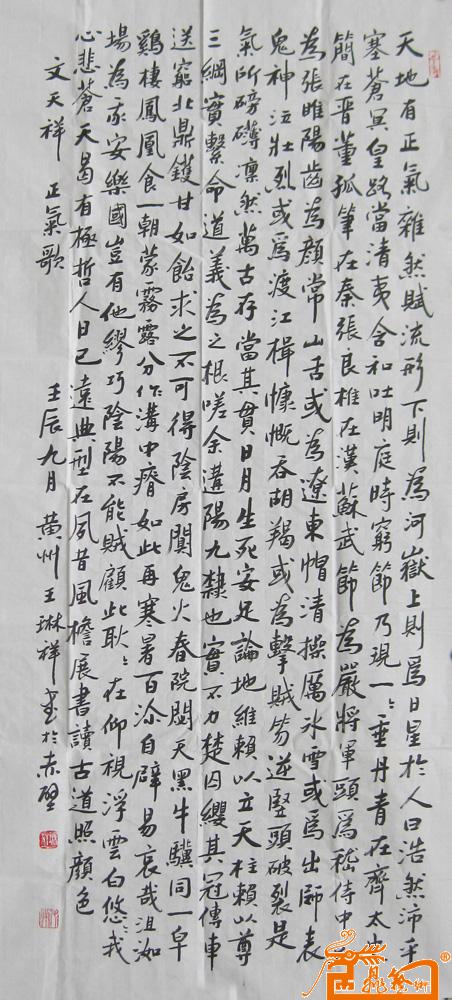 天地有正氣雜然賦流形下則為河嶽上則為日星於人曰浩然沛乎
塞蒼冥皇路當清夷含和吐明庭時窮節乃現一々垂丹青在齊太史
簡在晉董狐筆在秦張良椎在漢蘇武節為嚴將軍頭為嵇侍中
為張睢陽齒為顏常山舌或為遼東帽清操厲冰雪或為出師表
鬼神泣壯烈或為渡江楫慷慨吞胡羯或為擊賊笏逆豎頭破裂是
氣所磅礴凜然萬古存當其貫日月生死安足論地維賴以立天柱賴以尊
三綱實繫命道義為之根嗟余遘陽九隸也實不力楚囚纓其冠傳車
送窮北鼎鑊甘如飴求之不可得陰房闃鬼火春院閟天黑牛驥同一皁
鷄棲鳳凰食一朝蒙霧露分作溝中瘠如此再寒暑百沴自辟易哀哉沮洳
場為我安樂國豈有他繆巧陰陽不能賊顧此耿々在仰視浮雲白悠々我
心悲蒼天曷有極哲人日已遠典型在夙昔風檐展書讀古道照顏色
文天祥 正氣歌 壬辰九月 黃州王琳祥書於赤壁